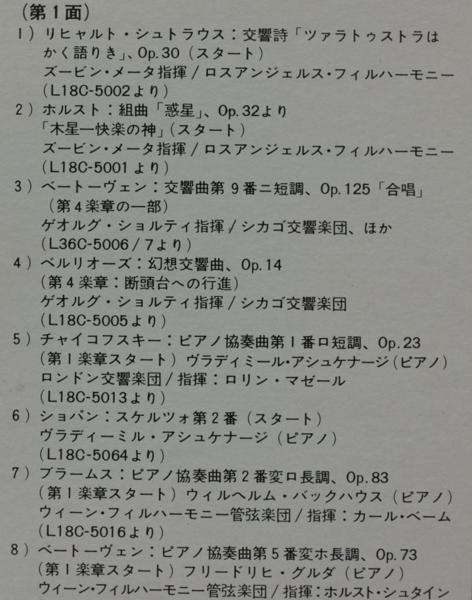 (第1面)
1) リヒャルト・シュトラウス：交響詩「ツァラトゥストラは
かく語りき」、Op.30 (スタート)
ズービン・メータ指揮/ロスアンジェルス・フィルハーモニー
(L18C-5002より)
2) ホルスト：組曲「惑星」、Op.32より
「木星—快楽の神」(スタート)
ズービン・メータ指揮/ロスアンジェルス・フィルハーモニー
(L18C-5001より)
3) ベートーヴェン：交響曲第9番ニ短調、Op.125「合唱」
(第4楽章の一部)
ゲオルグ・ショルティ指揮/シカゴ交響楽団、ほか
(L36C-5006/7より)
4) ベルリオーズ：幻想交響曲、Op.14
(第4楽章：断頭台への行進)
ゲオルグ・ショルティ指揮/シカゴ交響楽団
(L18C-5005より)
5) チャイコフスキー：ピアノ協奏曲第1番ロ短調、Op.23
(第1楽章スタート) ヴラディミール・アシュケナージ(ピアノ)
ロンドン交響楽団/指揮：ロリン・マゼール
(L18C-5013より)
6) ショパン：スケルツォ第2番 (スタート)
ヴラディーミル・アシュケナージ (ピアノ)
(L18C-5064より)
7) ブラームス：ピアノ協奏曲第2番変ロ長調、Op.83
(第1楽章スタート) ウィルヘルム・バックハウス (ピアノ)
ウィーン・フィルハーモニー管弦楽団/指揮：カール・ベーム
(L18C-5016より)
8) ベートーヴェン：ピアノ協奏曲第5番変ホ長調、Op.73
(第1楽章スタート) フリードリヒ・グルダ (ピアノ)
ウィーン・フィルハーモニー管弦楽団/指揮：ホルスト・シュタイン